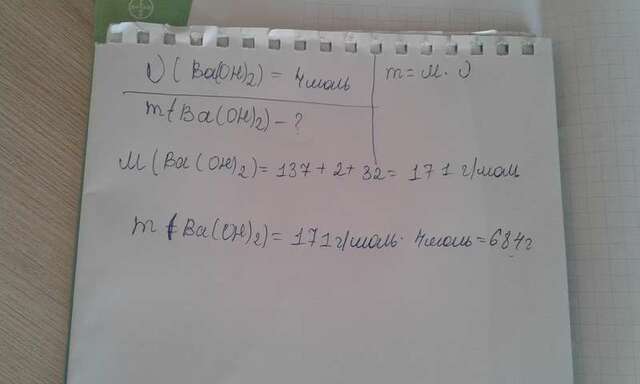 ν(Ba(OH)₂) = 4моль
m = M · ν
m(Ba(OH)₂) - ?
M(Ba(OH)₂) = 137 + 2 + 32 = 171 г/моль
m(Ba(OH)₂) = 171г/моль · 4моль = 684г